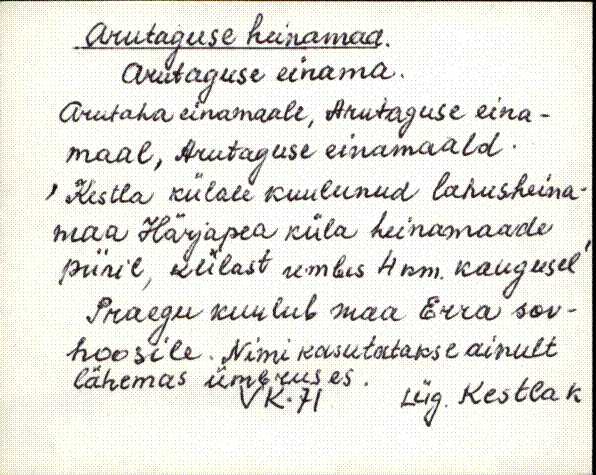 Arutaguse heinamad.
Arutaguse einama.
Arutaha einamaale, Arutaguse eina-
maal, Arutaguse einamaald.
'Kestla külale kuulunud lahusheina-
maa Härjapea küla heinamaade
piiril, külast umbes 4 km. kaugusel'
Praegu kuulub maa Erra sov-
hoosile. Nimi kasutatakse ainult
lähemas ümbruses.
VK. 71 Lüg. Kestla k